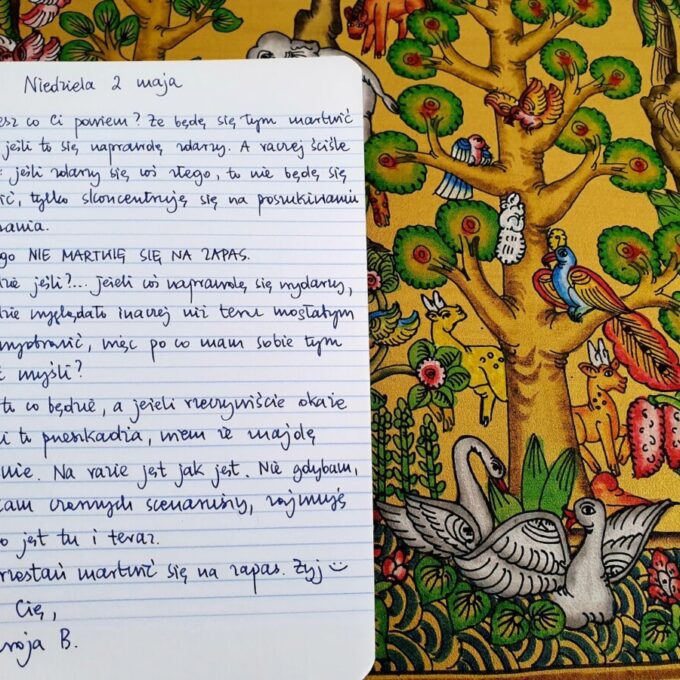 Niedziela 2 maja
esz co Ci powiem? Że będę się tym martwić
jeśli to się naprawdę zdarzy. A raczej ściśle
: jeśli zdarzy się coś złego, to nie będę się
ić, tylko skoncentruję się na poszukiwaniu
ania.
go NIE MARTWIĘ SIĘ NA ZAPAS.
dzie jeśli?... jeżeli coś naprawdę się wydarzy,
dzie wyglądało inaczej niż teraz mogłabym
wyobrazić, więc po co mam sobie tym
ć myśli?
co będzie, a jeżeli rzeczywiście okaże
i to przeszkadza, wiem że znajdę
nie. Na razie jest jak jest. Nie gdybam,
am czarnych scenariuszy, zajmuję
o jest tu i teraz.
rzestań martwić się na zapas. Żyj ☺
Cię,
woja B.